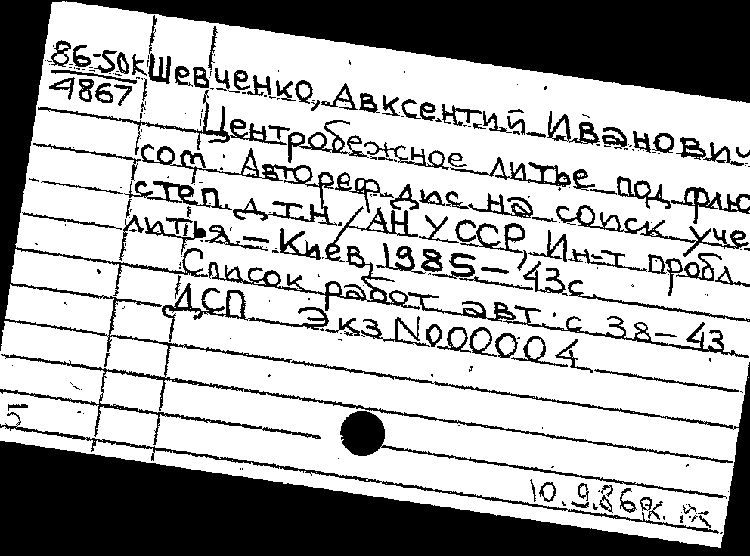 86-50к Шевченко, Авксентий Иванович
4867
Центробежное литье под флю
сом : Автореф. дис. на соиск уче
степ. д.т.н. / АН УССР, Ин-т пробл.
литья. – Киев, 1985 – 43с.
Список работ авт.: с 38 – 43.
ДСП Экз N000004
5
10.9.86